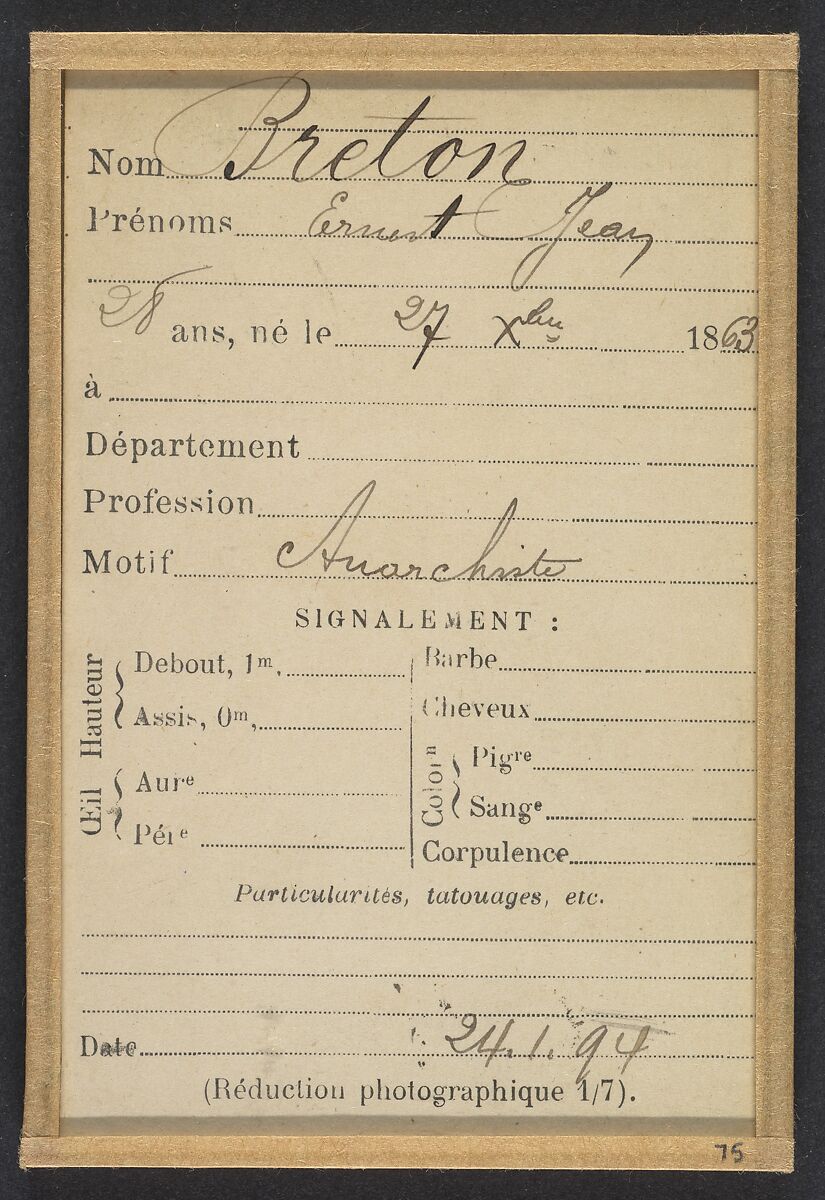 Nom Breton
Prénoms Ernest Jean
28 ans, né le 27 Xbre 1863
à
Département
Profession
Motif Anarchiste
SIGNALEMENT :
Hauteur
Debout, 1m,
Assis, 0m,
Œil
Aure
Pére
Barbe
Cheveux
Colorn
Pigre
Sange
Corpulence
Particularités, tatouages, etc.
Date 24.1.94
(Réduction photographique 1/7).
75